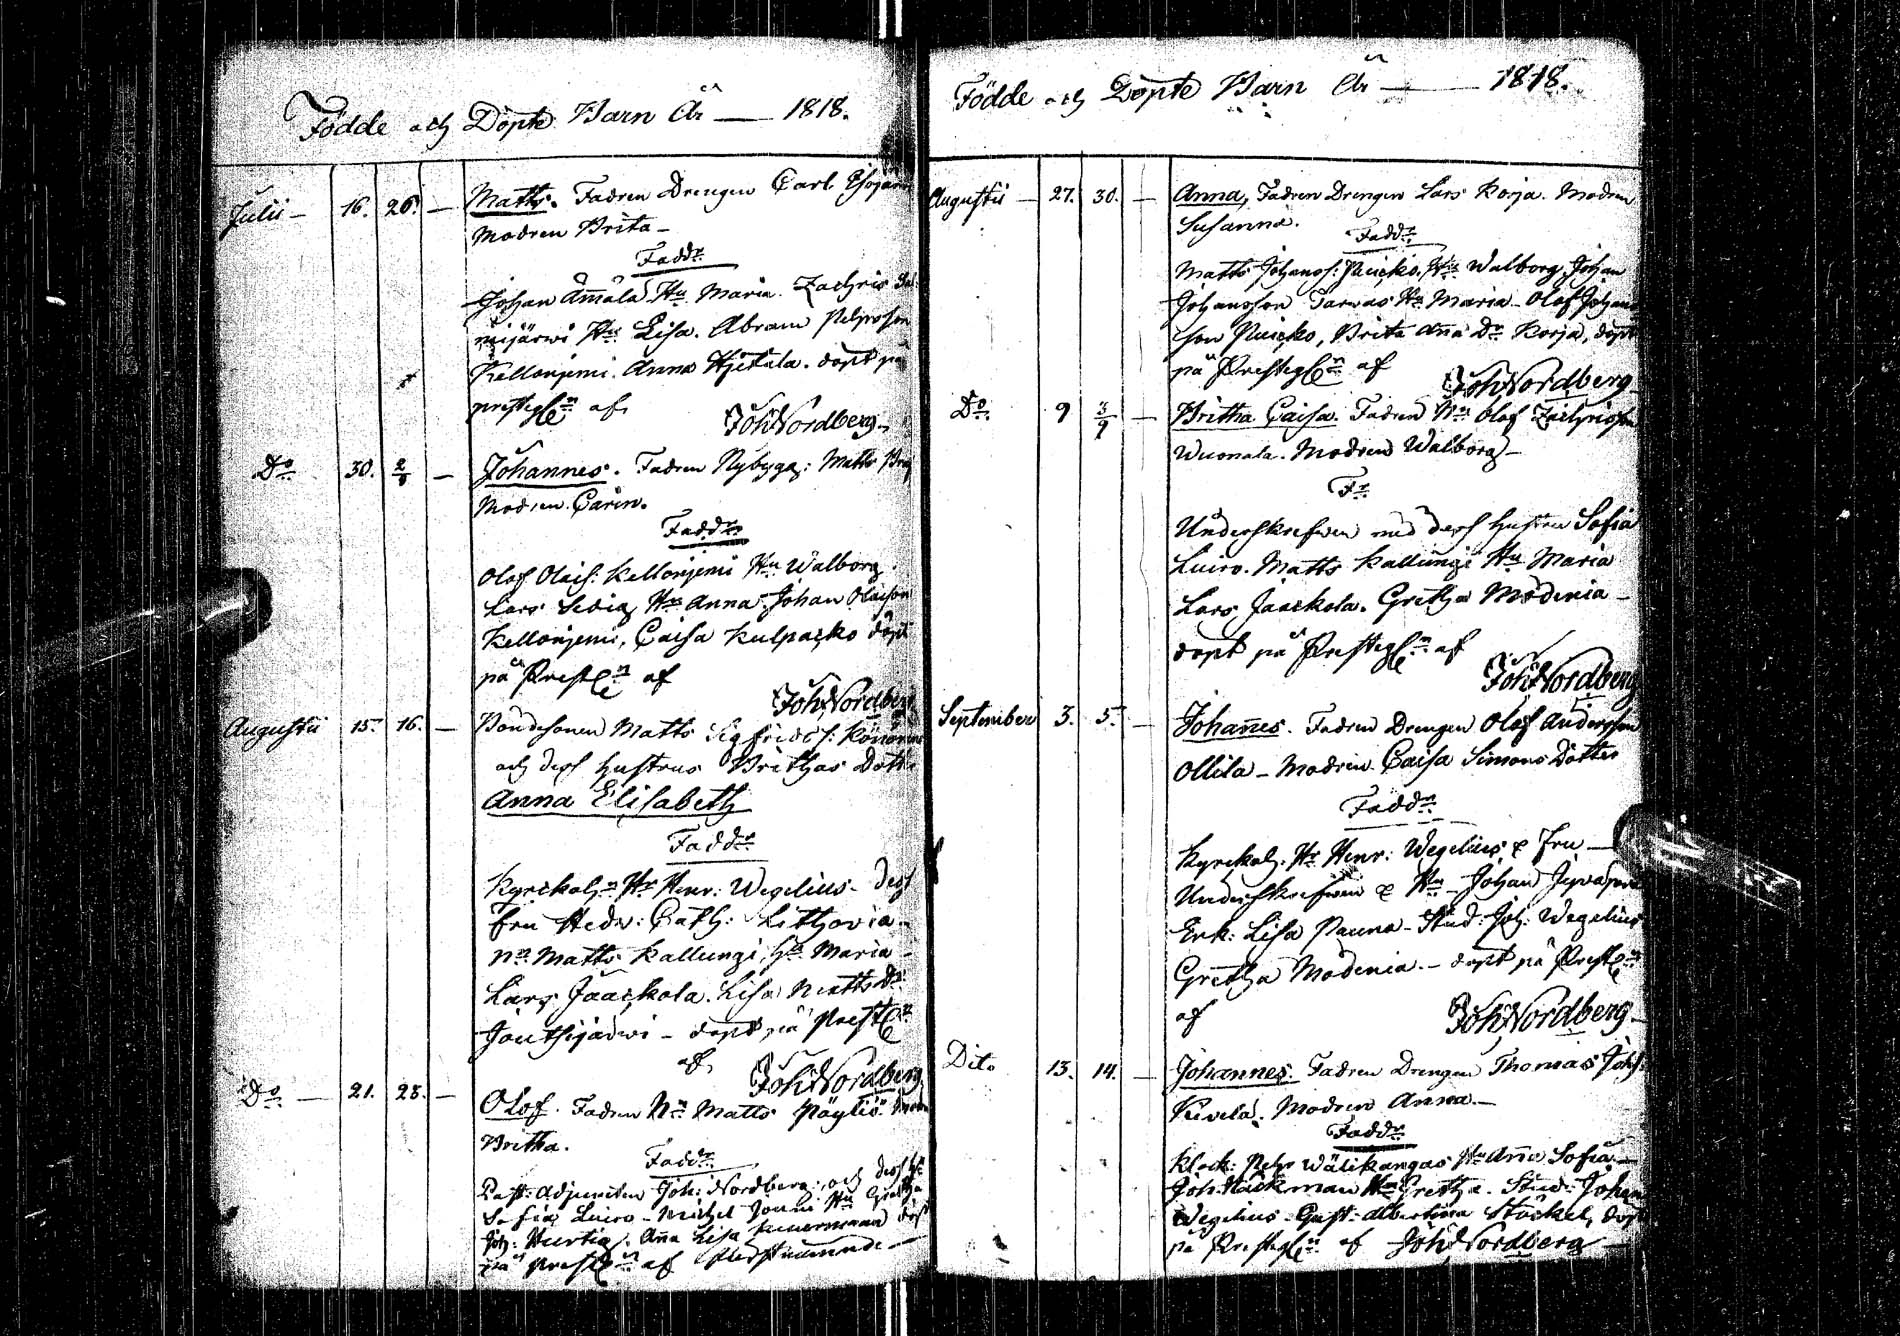 Födde och Döpte Barn År — 1818.
Julii — 16. 26. — Matts. Fadren Drengen Carl
Modren Brita —
Faddr
Johan Ammala Hu Maria. Zachris
mijärwi Hu Lisa. Abram Pehrsson
Kellonjemi. Anna Hjetala. döpt på
prestg. af
Joh Nordberg
Do 30. 2/8 — Johannes. Fadren Nybygg: Matts
Modren Carin.
Faddr
Olof Olofs: Kellonjemi Hu Walborg
Lars Hu Anna, Johan Olofson
Kellonjemi, Caisa Kulpacko döpt
på Prest. af
Joh Nordberg
Augustii 15. 16. — Bondesonen Matts Sigfrids:
och dess Hustrus Brithas Dotter
Anna Elisabeth
Faddr
Kyrckoh. Hr Henr: Wegelius — dess
fru Hedv: Cath: Lithovia —
Nn Matts Kallungi, Hu Maria —
Lars Jaackola. Lisa Matts Dr
Jouthijärwi — döpt på Prest.
af Joh Nordberg
Do — 21. 23. — Olof. Fadren Nn Matts Pöyliö. Modren
Britha.
Faddr
Past: Adjuncten Joh: Nordberg, och dess Hu
Sofia Luiro — Michel Jouni Hu Gretha
Joh: Hurtig. Anna Lisa döpt
på Prest. af
Födde och Döpte Barn År — 1818.
Augustii — 27. 30. — Anna, Fadren Drengen Lars Korja. Modren
Susanna.
Faddr
Matts Johanss: Puicko. Hu Walborg. Johan
Johansson Tarvas Hu Maria — Olof Johans
son Puicko, Brita Anna Dr Korja, döpt
på Prestg. af Joh Nordberg
Do 9 3/9 — Britha Caisa. Fadren Nn Olof Zachrisson
Wuonala. Modren Walborg —
Fr
Underskrefwen med dess hustru Sofia
Luiro. Matts Kallungi Hu Maria
Lars Jaackola. Gretha Modenia —
döpt på Prestg. af
Joh Nordberg
September 3. 5. — Johannes. Fadren Drengen Olof Andersson
Ollila — Modren Caisa Simons Dotter
Faddr
Kyrckoh. Hr Henr: Wegelius & fru —
Underskrefwen & Hu — Johan
Enk: Lisa Pauna — Stud: Joh: Wegelius
Gretha Modenia. — döpt på Prest.
af Joh Nordberg
Dito 13. 14. — Johannes. Fadren Drengen Thomas Johs:
Kivela. Modren Anna. —
Faddr
Klock: Pehr Wälikangas Hu Anna Sofia —
Joh: Häckman Hu Gretha. Stud: Johan
Wegelius — Gust: Albertina Stöckel, döpt
på Prestg. af Joh Nordberg —